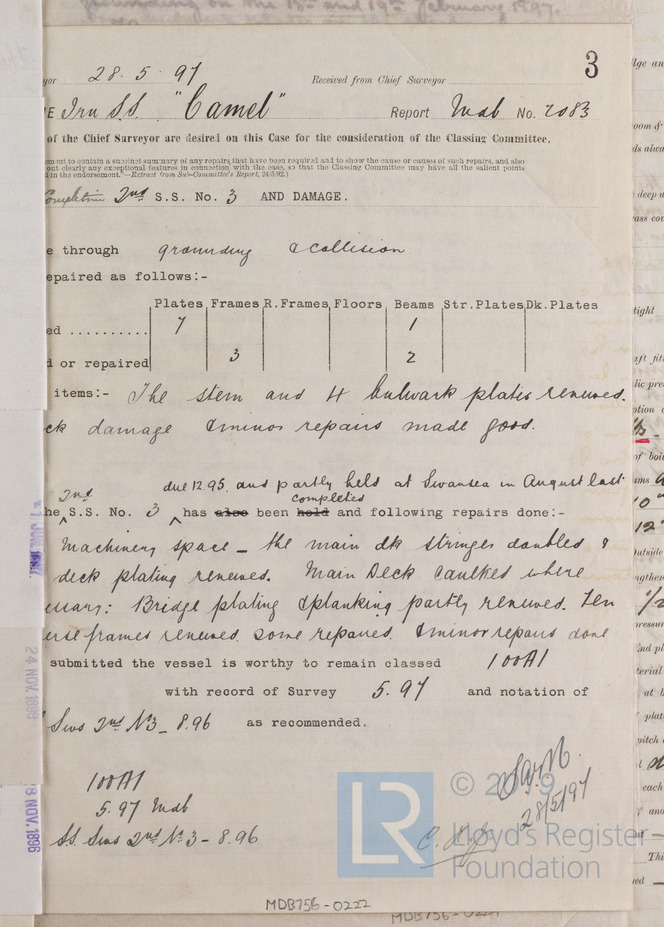 grounding on the 13th and 19th February 1897.
3
yor 28.5.97 Received from Chief Surveyor
E Iron S.S. "Camel" Report Mdb No. 2083
of the Chief Surveyor are desired on this Case for the consideration of the Classing Committee.
ement to contain a succinct summary of any repairs that have been required and to show the cause or causes of such repairs, and also
out clearly any exceptional features in connection with the case, so that the Classing Committee may have all the salient points
d in the endorsement."—Extract from Sub-Committee's Report, 24/5/92.)
Completion 2nd S.S. No. 3 AND DAMAGE.
e through grounding & collision
epaired as follows:-
Plates Frames R.Frames Floors Beams Str.Plates Dk.Plates
ed .......... 7 1
d or repaired 3 2
items:- The stem and 4 bulwark plates renewed.
ck damage & minor repairs made good.
due 12.95. and partly held at Swansea in August last
2nd completed
he S.S. No. 3 has also been held and following repairs done:-
Machinery space - the main dk stringer doubled &
deck plating renewed. Main Deck caulked where
essary: Bridge plating & planking partly renewed. Ten
erse frames renewed, some repaired. & minor repairs done
submitted the vessel is worthy to remain classed 100A1
with record of Survey 5.97 and notation of
Sws 2nd No 3 - 8.96 as recommended.
100A1
5.97 Mdb
SS. Sws 2nd No. 3 - 8.96
28/5/97
© 2019
LR
Lloyd's Register
Foundation
24 NOV. 1896
18 NOV. 1896
MDB756-0222